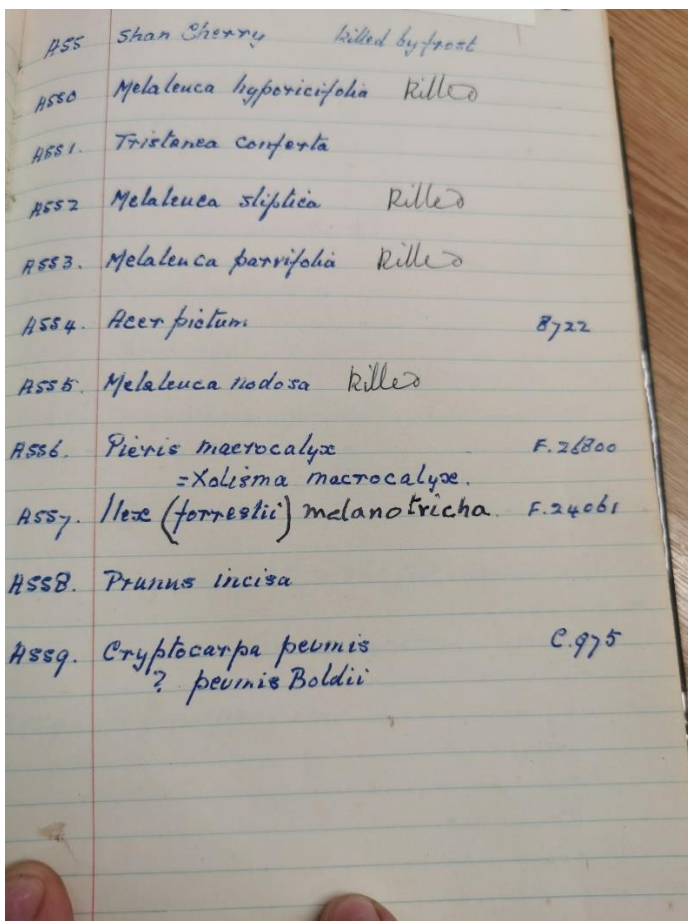 A55 Shan Cherry killed by frost
A550 Melaleuca hypericifolia killed
A551. Tristanea conferta
A552 Melaleuca sliptica killed
A553. Melaleuca parvifolia killed
A554. Acer pictum 8722
A555. Melaleuca nodosa killed
A556. Pieris macrocalyx F.26800
=Xolisma macrocalyx.
A557. Ilex (forrestii) melanotricha. F.24061
A558. Prunus incisa
A559. Cryptocarpa peumis C.975
? peumis Boldii